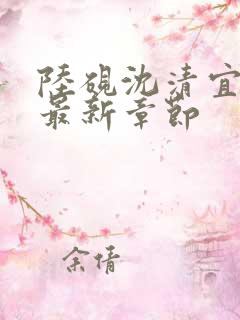 陸硯沈清宜
最新章節
余倩